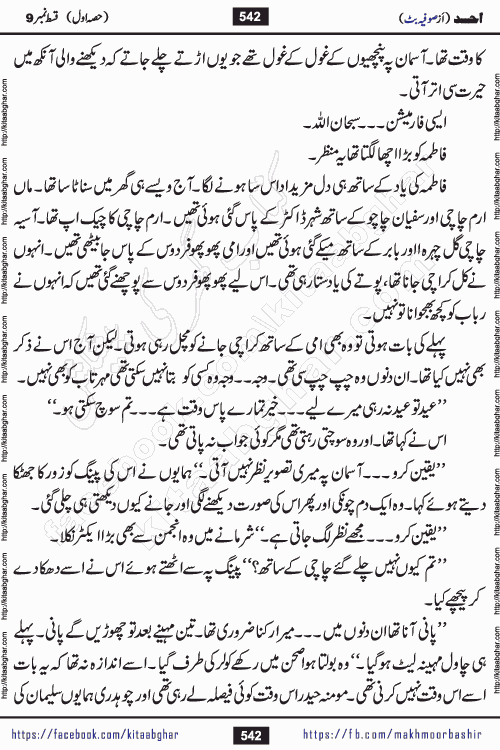 احمد (از صوفیہ بٹ)
542
(حصہ اول) قسط نمبر 9
کا وقت تھا۔ آسمان پہ پنچھیوں کے غول کے غول تھے جو یوں اڑتے چلے جاتے کہ دیکھنے والی آنکھ میں
حیرت سی اتر آتی۔
ایسی فارمیشن۔۔۔ سبحان اللہ۔
فاطمہ کو بڑا اچھا لگتا تھا یہ منظر۔
فاطمہ کی یاد کے ساتھ ہی دل مزید اداس سا ہونے لگا۔ آج ویسے ہی گھر میں سناٹا سا تھا۔ ماں
ارم چاچی اور سفیان چاچو کے ساتھ شہر ڈاکٹر کے پاس گئی ہوئی تھیں۔ ارم چاچی کا چیک اپ تھا۔ آسیہ
چاچی گل چہرہ اور بابر کے ساتھ میکے گئی ہوئی تھیں اور امی پھوپھو فردوس کے پاس جا بیٹھی تھیں۔ انہوں
نے کل کراچی جانا تھا، پوتے کی یاد ستا رہی تھی۔ اس لیے پھوپھو فردوس سے پوچھنے گئی تھیں کہ انہوں نے
رباب کو کچھ بھجوانا تو نہیں۔
پہلے کی بات ہوتی تو وہ بھی امی کے ساتھ کراچی جانے کو مچل رہی ہوتی۔ لیکن آج اس نے ذکر
بھی نہیں کیا تھا۔ ان دنوں وہ چپ چپ سی تھی۔ وجہ۔۔ وجہ وہ کسی کو بتا نہیں سکتی تھی مہرتاب کو بھی نہیں۔
”عید تو عید نہ رہی میرے لیے۔۔۔ خیر تمہارے پاس وقت ہے۔۔۔ تم سوچ سکتی ہو۔“
اس نے کہا تھا۔ اور وہ سوچتی رہتی تھی مگر کوئی جواب نہ پاتی تھی۔
”یقین کرو۔۔۔ آسمان پہ میری تصویر نظر نہیں آتی۔“ ہمایوں نے اس کی پینگ کو زور کا جھٹکا
دیتے ہوئے کہا۔ وہ ایک دم چونکی اور پھر اس کی صورت دیکھنے لگی اور جانے کیوں دیکھتی ہی چلی گئی۔
”یقین کرو۔۔۔ مجھے نظر لگ جاتی ہے۔“ شرمانے میں وہ انجمن سے بھی بڑا ایکٹر نکلا۔
”تم کیوں نہیں چلے گئے چاچی کے ساتھ؟“ پینگ پہ سے اٹھتے ہوئے اس نے اسے دھکا دے
کر پیچھے کیا۔
”پانی آنا تھا ان دنوں میں۔۔۔ میرا رکنا ضروری تھا۔ تین مہینے بعد تو چھوڑیں گے پانی۔ پہلے
ہی چاول مہینہ لیٹ ہو گیا۔“ وہ بولتا ہوا صحن میں رکھے کولر کی طرف گیا۔ اسے اندازہ نہ تھا کہ یہ بات
اسے اس وقت نہیں کرنی تھی۔ مومنہ حیدر اس وقت کوئی فیصلہ لے رہی تھی اور چوہدری ہمایوں سلیمان کی
https://facebook.com/kitaabghar
542
https://fb.com/makhmoorbashir
http://kitaabghar.com